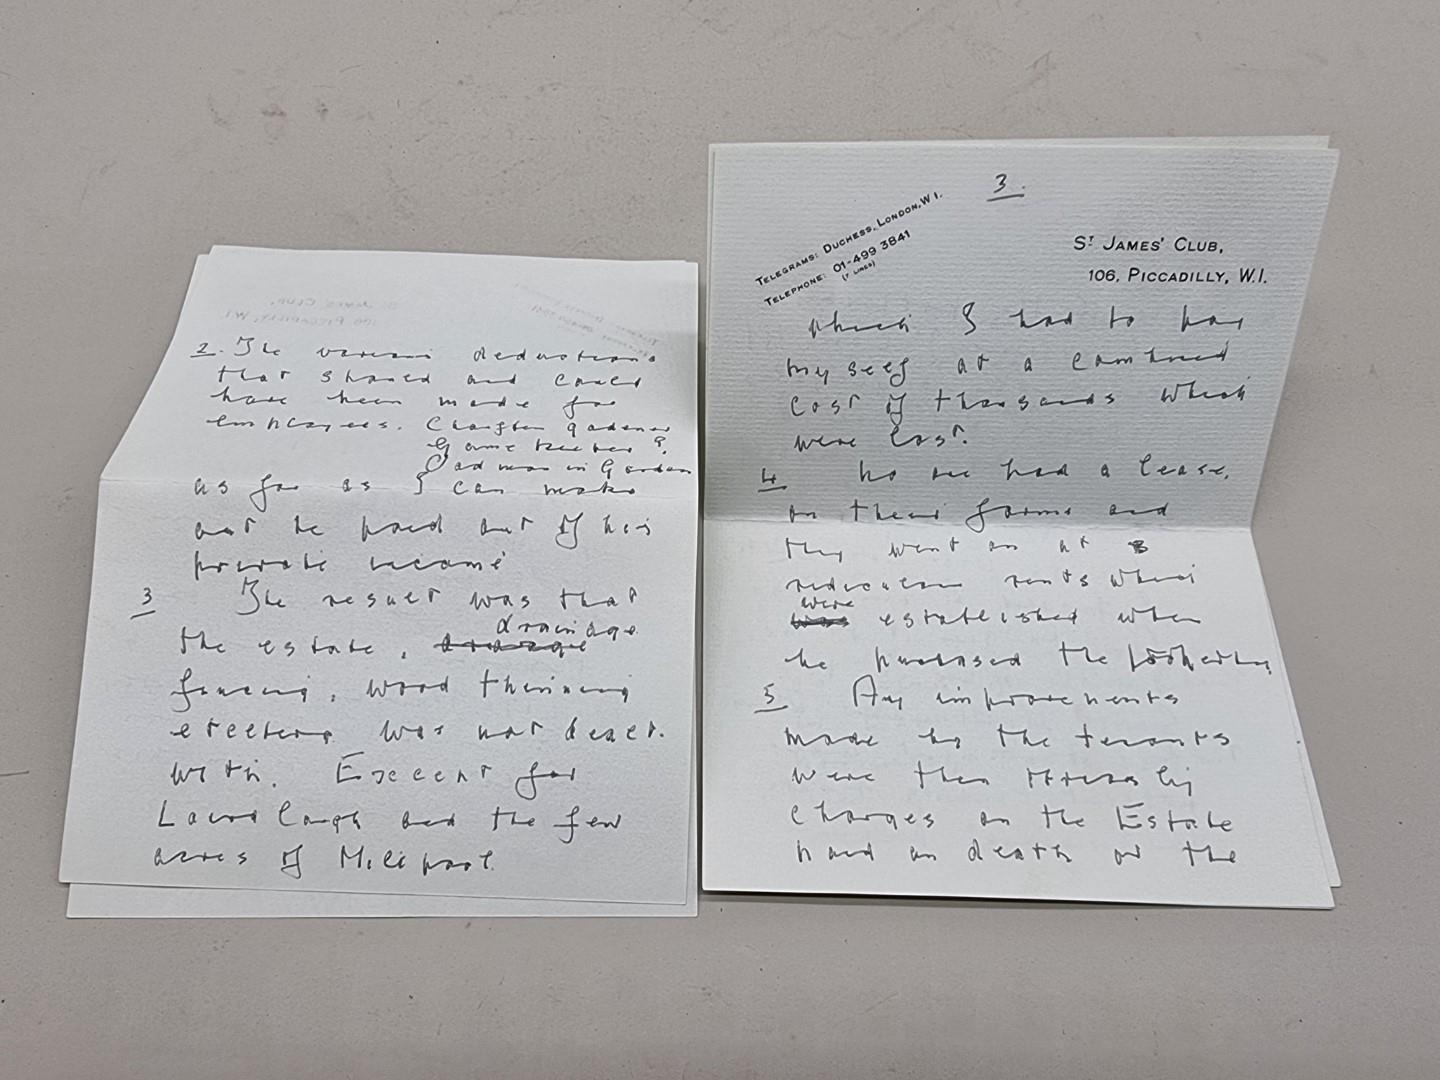 2. The various deductions
that should and could
have been made for
employees.
Game keeper?
Odd man in Garden
as far as I can make
out he paid out of his
private income
3 The result was that
drainage
the estate,
fencing, wood thinning
etcetera was not dealt.
with. Except for
and the few
acres of Millpool.
3.
TELEGRAMS: DUCHESS, LONDON, W1.
TELEPHONE: 01-499 3841
(7 LINES)
ST JAMES' CLUB,
106, PICCADILLY, W.I.
which I had to pay
myself at a combined
cost of thousands which
were lost.
4 No one had a lease,
on their farms and
they went on at
rediculous rents which
were
was established when
he purchased the property,
5 Any improvements
made by the tenants
were then
charges on the Estate
paid on death or the